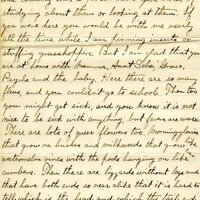 studying about them or looking at them. If
you was here you would be with me nearly
all the time while I am pinning insects or
stuffing grasshoppers. But I am glad that you
are at home with Mamma, Aunt Grace,
and the baby. Here there are so many
fleas, and you couldn't go to school. Then too
you might get sick, and you know it is not
nice to be sick with anything, but fevers are worse.
There are lots of queer flowers too. Morning glories
that grow on bushes and milkweeds that grow like
watermelon vines with the pods hanging on like
cumbers. Then there are lizzards without legs and
that have both ends so near alike that it is hard to
tell which is the head and which the tail and